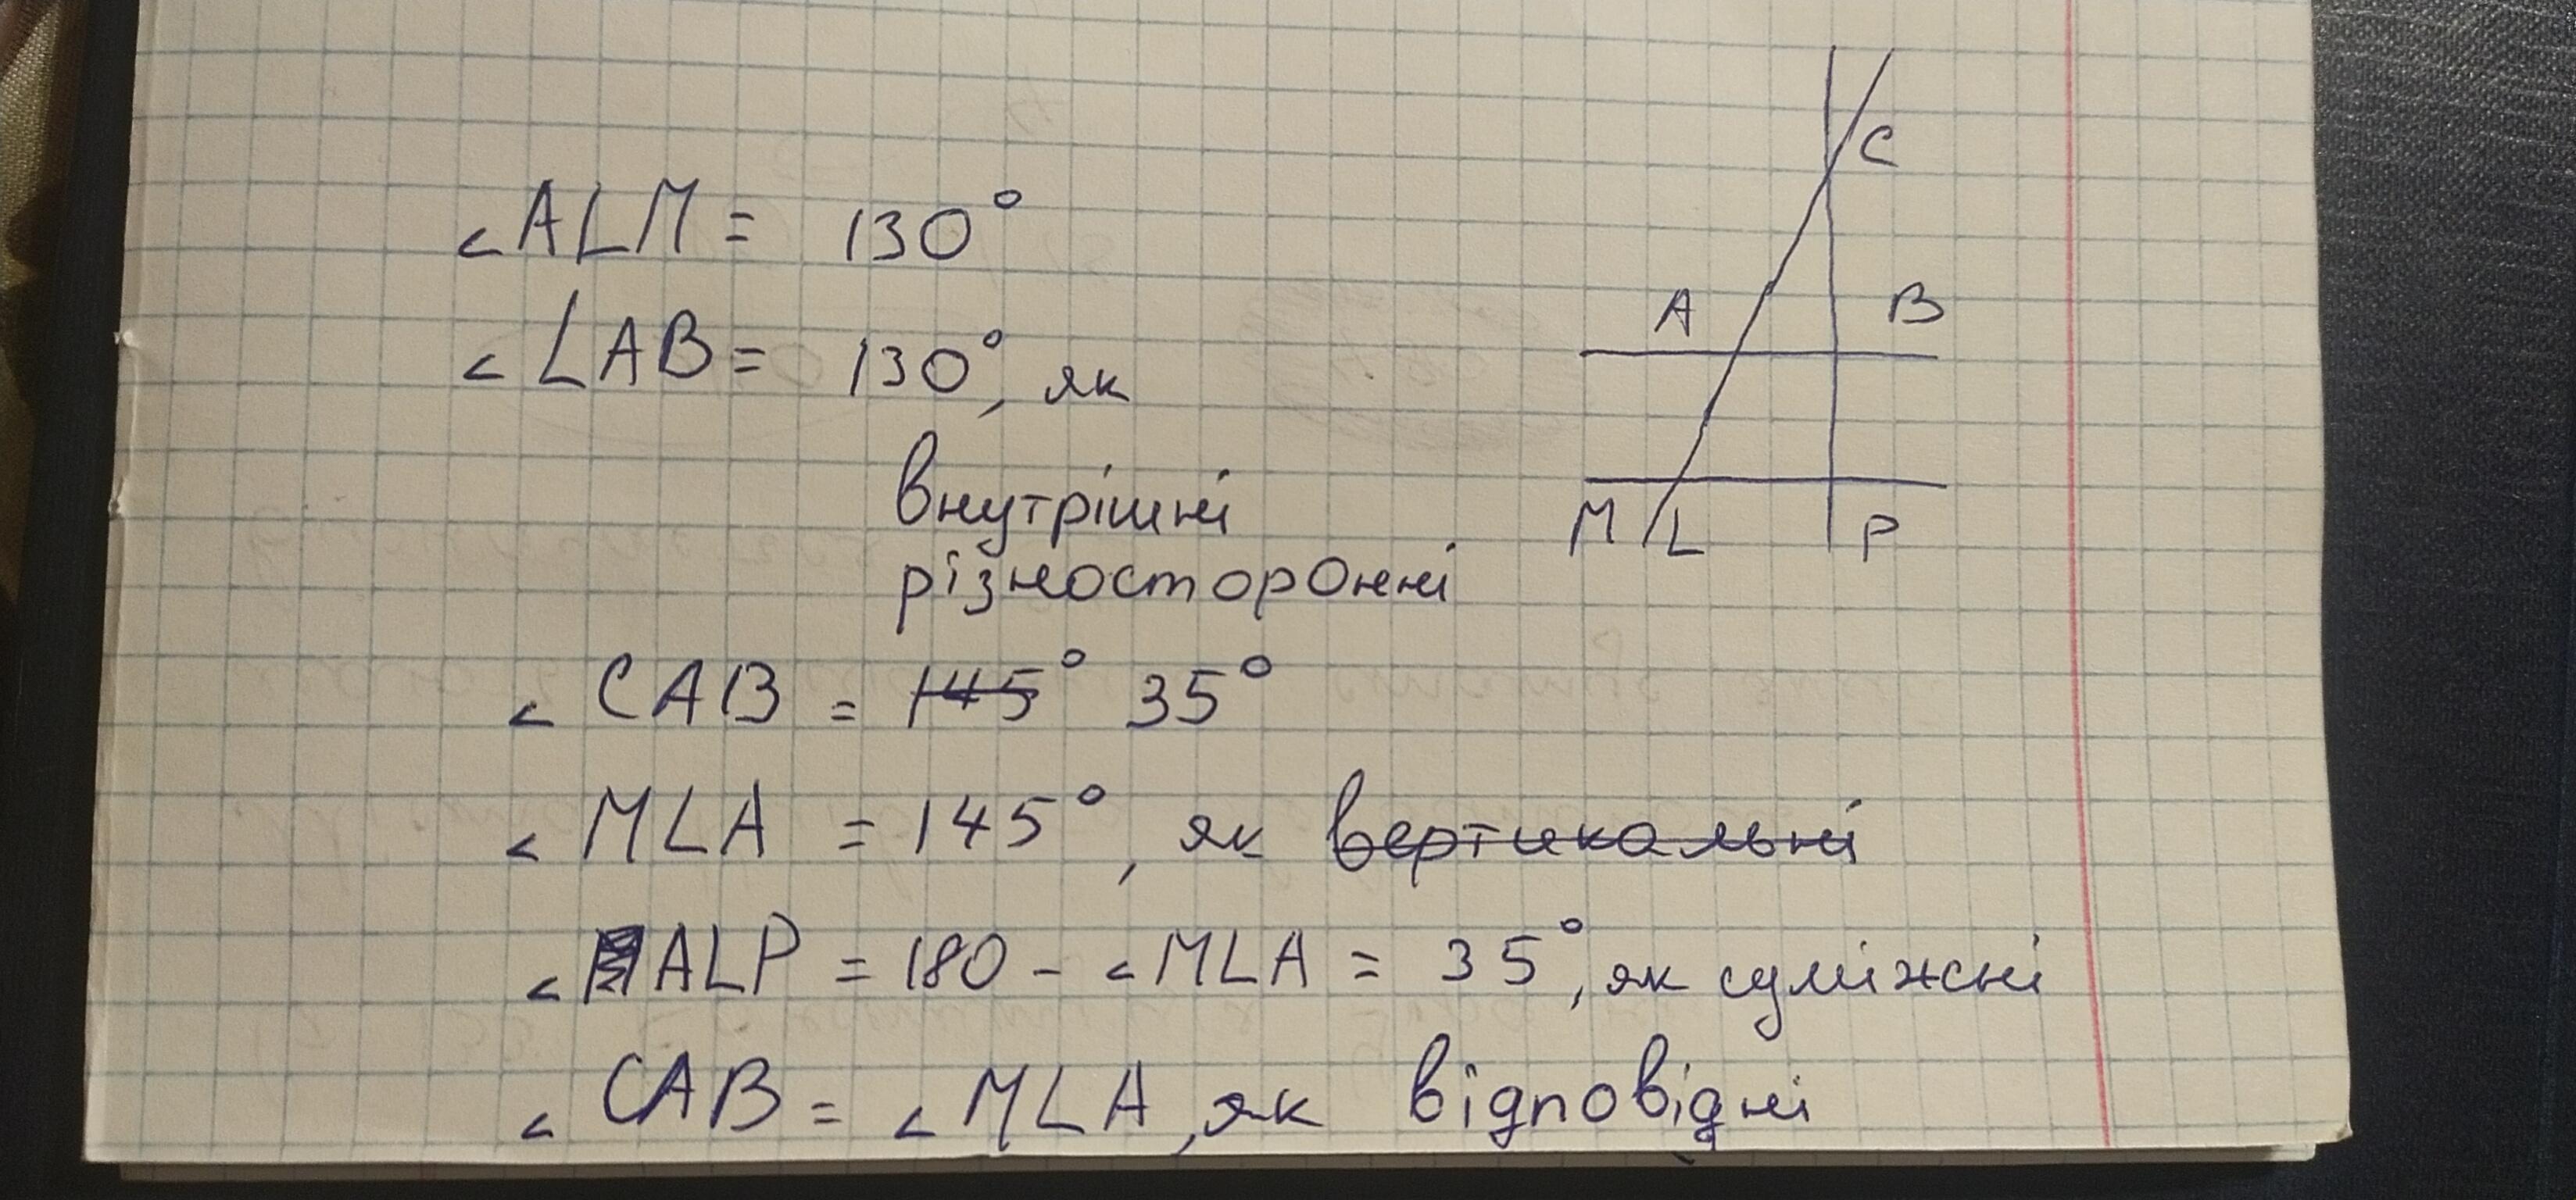 ∠ALM = 130°
∠LAB = 130°, як
внутрішні
різносторонні
∠CAB = ~~145°~~ 35°
∠MLA = 145°, як ~~вертикальні~~
∠ALP = 180 - ∠MLA = 35°, як суміжні
∠CAB = ∠MLA, як відповідні
C
A B
M L P